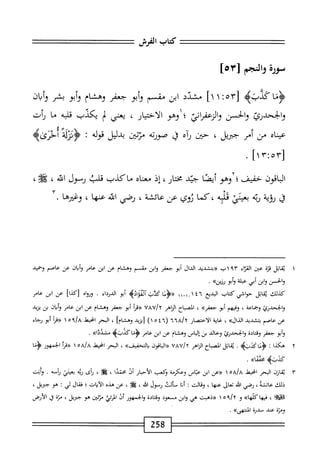 كتاب الفرش
سورة والنجم [٥٣]
﴿مَا كَذَّبَ﴾ [١١:٥٣] مشدّد ابن مقسم وأبو جعفر وهشام وأبو بشر وأبان
والجحدريّ والحسن والزعفرانيّ ١؛ وهو الاختيار ، يعني لم يكذّب قلبه ما رأت
عيناه من أمر جبريل ، حين رآه في صورته مرّتين بدليل قوله : ﴿نَزْلَةً أُخْرَىٰ﴾
[١٣:٥٣] .
الباقون خفيف ٢؛ وهو أيضًا جيّد مختار ، إذ معناه ما كذب قلبُ رسول الله ، ﷺ ،
في رؤية ربّه بعينَيْ قَلْبِه ، كما رُوي عن عائشة ، رضي الله عنها ، وغيرها . ٣
١ يُقابل قرّة عين القرّاء ١٩٣ب «بتشديد الذال أبو جعفر وابن مقسم وهشام عن ابن عامر وأبان عن عاصم وحميد
والحسن وابن أبي عبلة وأبو رزين» .
كذلك يُقابل حواشي كتاب البديع ١٤٦ .... «﴿مَا كَذَّبَ ٱلْفُؤَادُ﴾ أبو الدرداء . ورواه [كذا] عن ابن عامر
والجحدريّ وجماعة ، وفيهم أبو جعفر» ، المصباح الزاهر ٧٨٧/٢ «قرأ أبو جعفر وهشام عن ابن عامر وأبان بن يزيد
عن عاصم بتشديد الذال» ؛ غاية الاختصار ٦٦٨/٢ (١٤٤٦) [يزيد وهشام] ، البحر المحيط ١٥٩/٨ «قرأ أبو رجاء
وأبو جعفر وقتادة والجحدريّ وخالد بن إلياس وهشام عن ابن عامر ﴿مَا كَذَّبَ﴾ مشدّدًا» .
٢ هكذا : ﴿مَا كَذَبَ﴾ . يُقابل المصباح الزاهر ٧٨٧/٢ «الباقون بالتخفيف» ، البحر المحيط ١٥٨/٨ «قرأ الجمهور ﴿مَا
كَذَبَ﴾ مخفّفًا» .
٣ يُقارن البحر المحيط ١٥٨/٨ «عن ابن عبّاس وعكرمة وكعب الأحبار أنّ محمّدًا ، ﷺ ، رأى ربّه بعينَيْ رأسه . وأبت
ذلك عائشة ، رضي الله تعالى عنها ، وقالت : أنا سألتُ رسول الله ، ﷺ ، عن هذه الآيات ؛ فقال لي : هو جبريل ،
ﷺ ، فيها كلّها» و ١٥٩/٢ «ذهبت هي وابن مسعود وقتادة والجمهور أنّ المرئيّ مرّتين هو جبريل ، مرّة في الأرض
ومرّة عند سدرة المنتهى» .
258